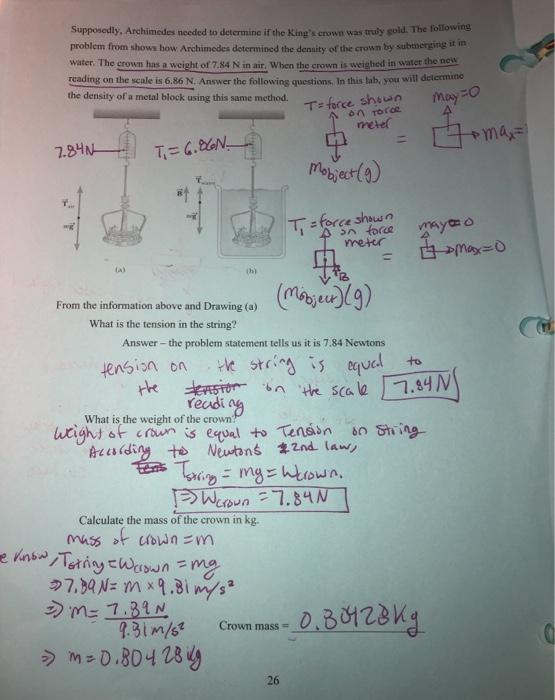 Supposedly, Archimedes needed to determine if the King's crown was truly gold. The following
problem from shows how Archimedes determined the density of the crown by submerging it in
water. The crown has a weight of 7.84 N in air. When the crown is weighed in water the new
reading on the scale is 6.86 N. Answer the following questions. In this lab, you will determine
the density of a metal block using this same method.
T = force shown
on force
meter
may=0
= max=
7.84N
T₁ = 6.86N
Mobject(g)
T₁ = force shown
on force
meter
may=0
= max=0
B
(Mobject)(g)
(a)
(b)
From the information above and Drawing (a)
What is the tension in the string?
Answer – the problem statement tells us it is 7.84 Newtons
tension on the string is equal to
the tension on the scale 7.84N
reading
What is the weight of the crown?
Weight of crown is equal to Tension on String
According to Newtons 2nd law,
Tens Tstring = mg = Wcrown.
⇒ Wcrown = 7.84N
Calculate the mass of the crown in kg.
mass of crown = m
e Know, Tstring = Wcrown = mg
⇒ 7.89N = m × 9.81 m/s²
⇒ m = 7.89 N
9.81 m/s²
Crown mass = 0.80428kg
⇒ m = 0.80428 kg
26